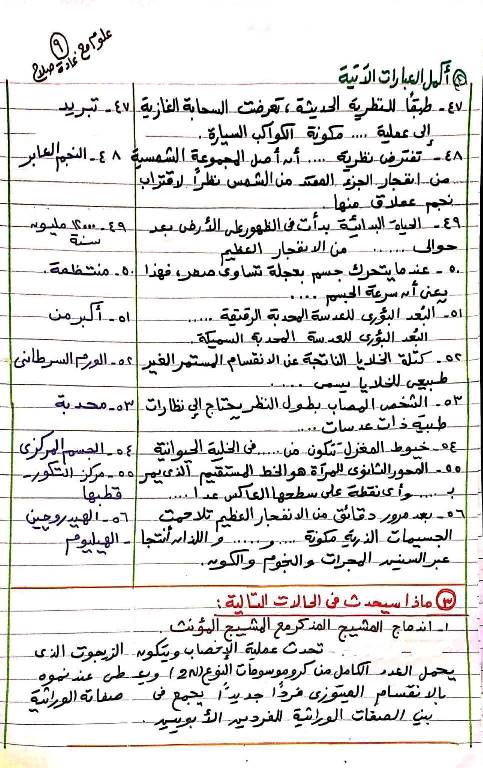 علوم مع غادة صلاح
٩
② أكمل العبارات الآتية
٤٧- طبقًا للنظرية الحديثة، تعرضت السحابة الغازية ٤٧- تبريد
إلى عملية .... مكونة الكواكب السيارة.
٤٨- تفترض نظرية .... أن أصل المجموعة الشمسية ٤٨- النجم العابر
من انفجار الجزء الممتد من الشمس نظرًا لاقتراب
نجم عملاق منها.
٤٩- الحياة البدائية بدأت فى الظهور على الأرض بعد ٤٩- ١٢٠٠٠ مليون
حوالى ...... من الانفجار العظيم سنة
٥٠- عندما يتحرك جسم بعجلة تساوى صفر، فهذا ٥٠- منتظمة.
يعنى أن سرعة الجسم ....
٥١- البُعد البؤرى للعدسة المحدبة الرقيقة ..... ٥١- أكبر من
البُعد البؤرى للعدسة المحدبة السميكة.
٥٢- كتلة الخلايا الناتجة عن الانقسام المستمر الغير ٥٢- الورم السرطانى
طبيعى للخلايا يسمى .....
٥٣- الشخص المصاب بطول النظر يحتاج إلى نظارات ٥٣- محدبة
طبية ذات عدسات ....
٥٤- خيوط المغزل تتكون من ..... فى الخلية الحيوانية ٥٤- الجسم المركزى
٥٥- المحور الثانوى للمرآة هو الخط المستقيم الذى يمر ٥٥- مركز التكور -
بـ ...... وأى نقطة على سطحها العاكس عدا .... قطبها
٥٦- بعد مرور دقائق من الانفجار العظيم تلاحمت ٥٦- الهيدروچين
الجسيمات الذرية مكونة .... و ..... و اللذان أنتجا - الهيليوم
عبر السنين المجرات والنجوم والكون.
③ ماذا سيحدث فى الحالات التالية:
١- اندماج المشيج المذكر مع المشيج المؤنث
تحدث عملية الإخصاب ويتكون الزيجوت الذى
يحمل العدد الكامل من كروموسومات النوع (2N) ويعطى عند نموه
بالانقسام الميتوزى فردًا جديدًا يجمع فى صفاته الوراثية
بين الصفات الوراثية للفردين الأبويين.